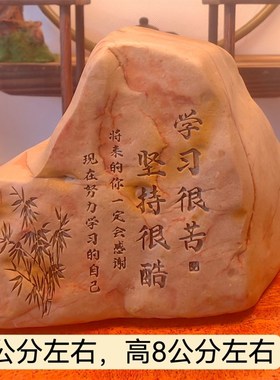 学习很苦
坚持很酷
将来的你一定会感谢
现在努力学习的自己
公分左右，高8公分左右